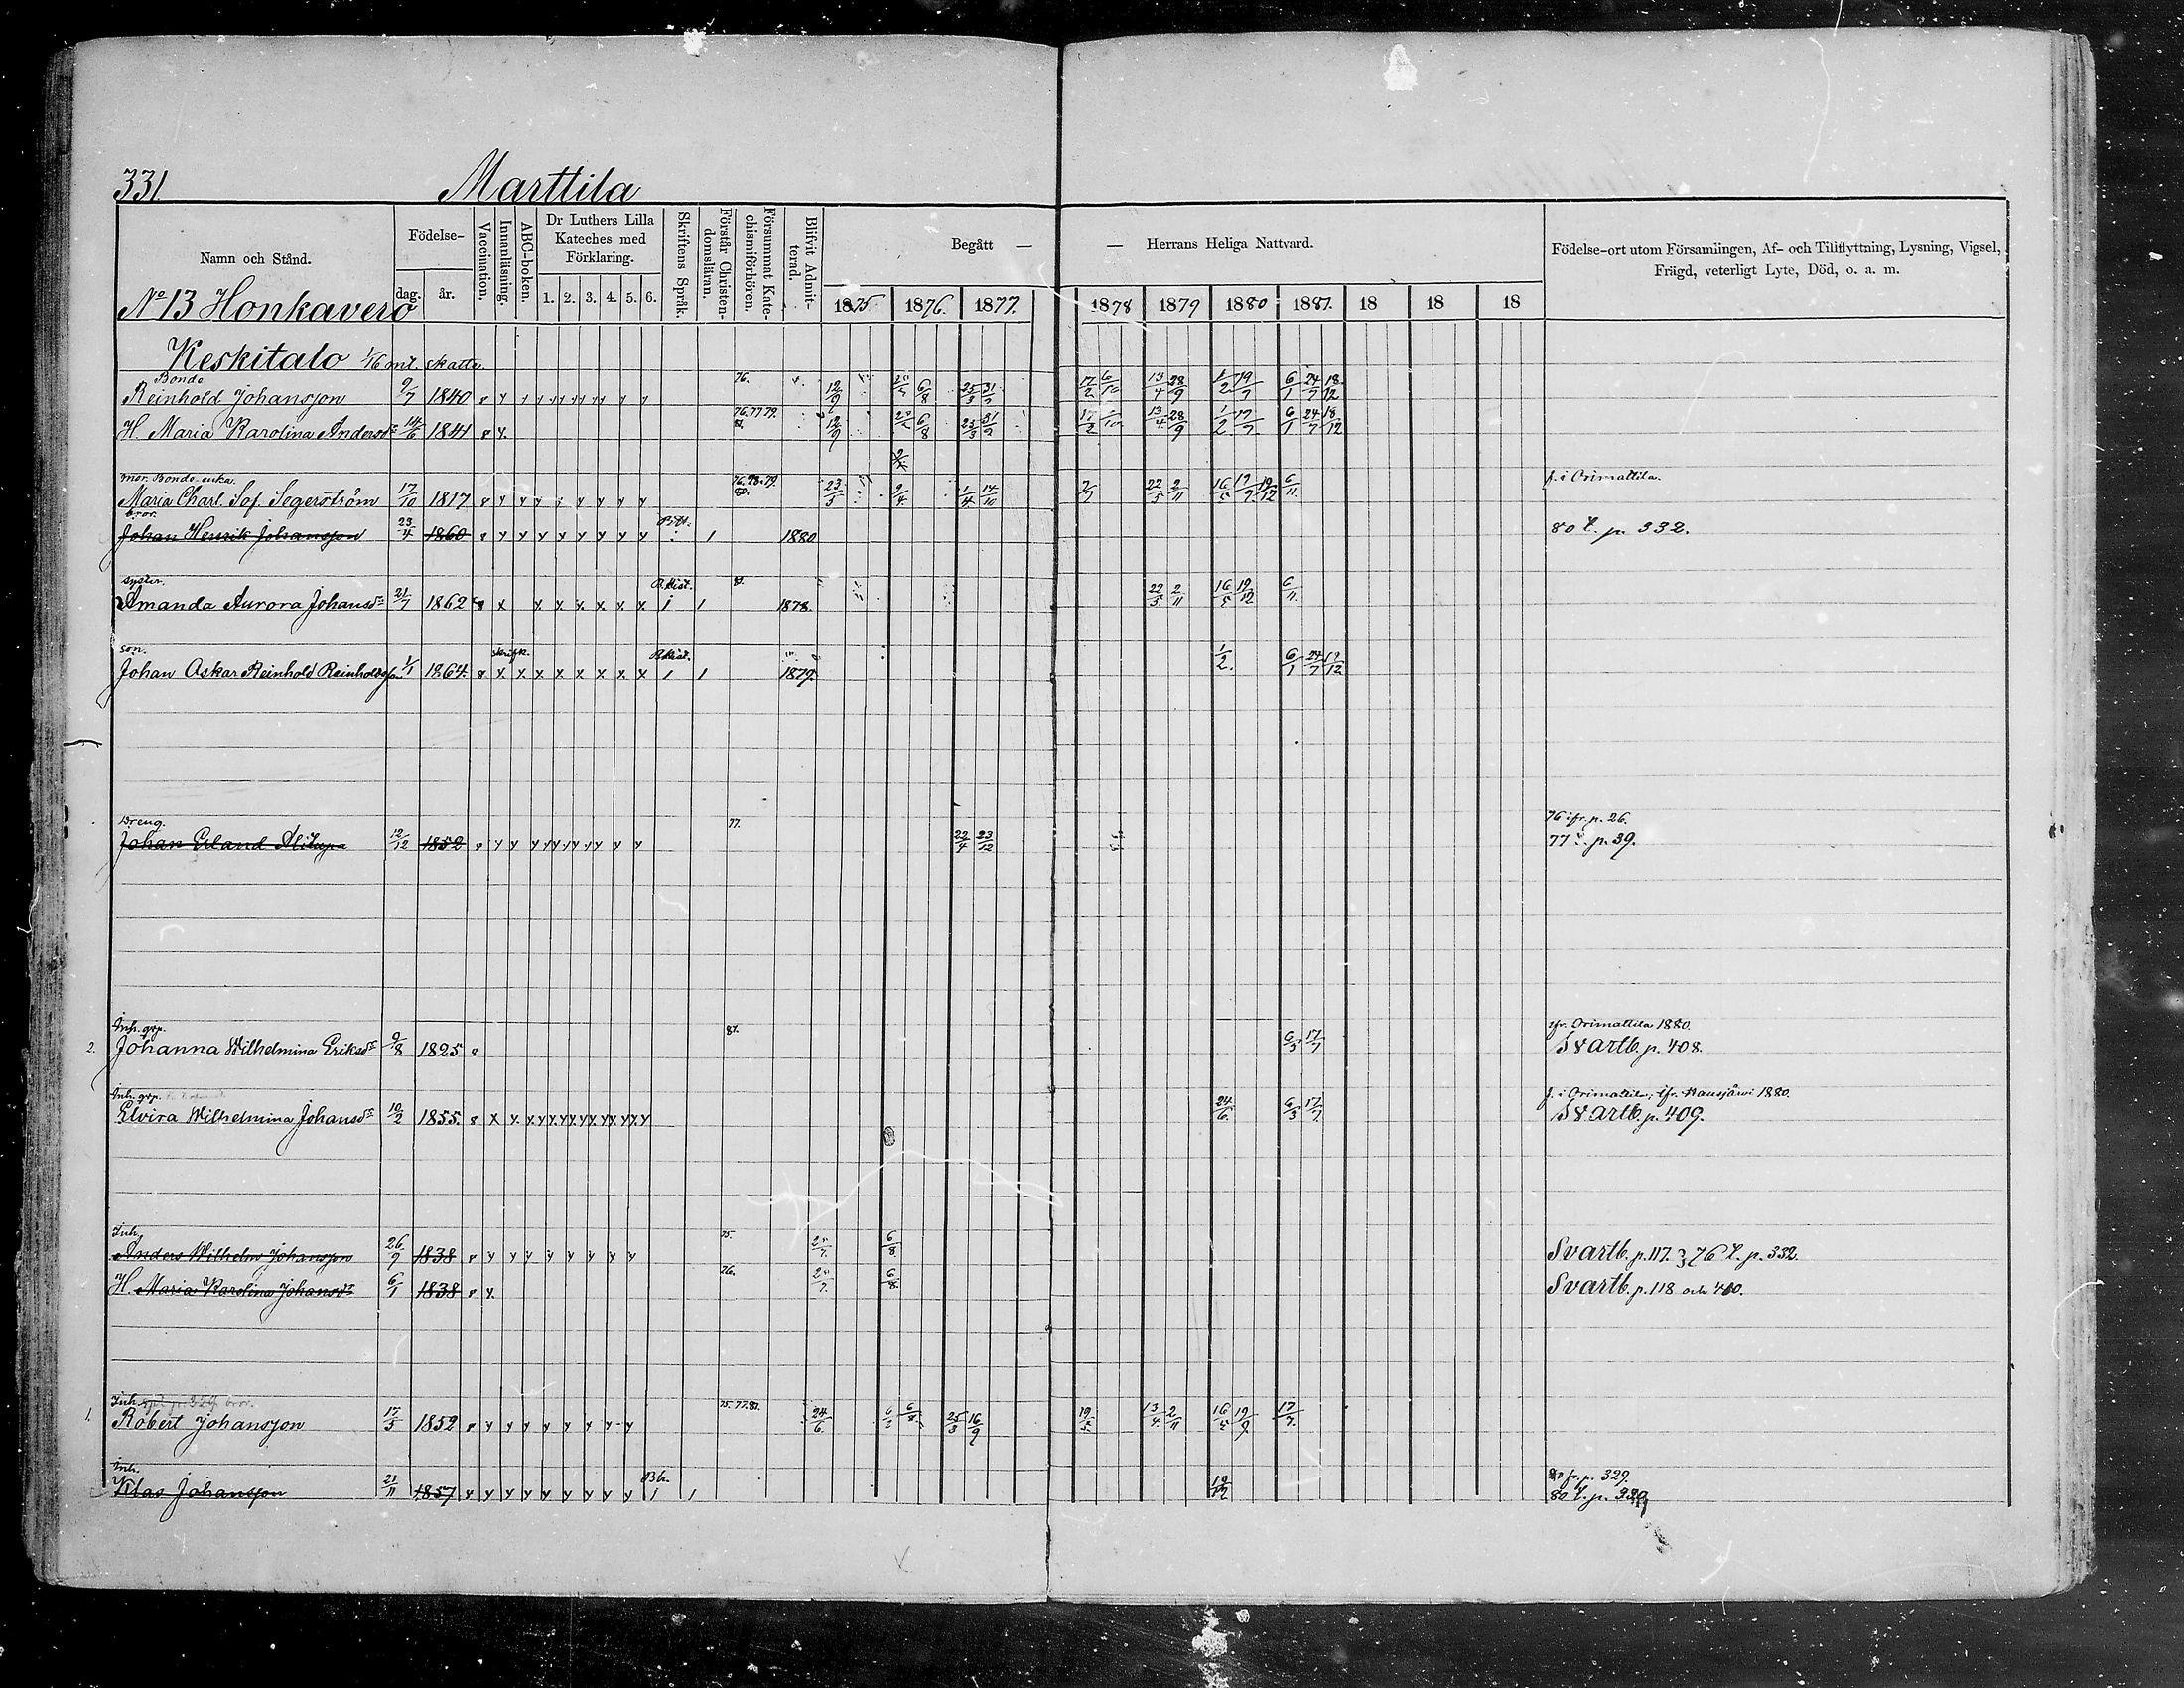 331.
Marttila
Namn och Stånd.
Födelse-
dag.
år.
Vaccination.
Innanläsning.
ABC-boken.
Dr Luthers Lilla
Kateches med
Förklaring.
1. 2. 3. 4. 5. 6.
Skriftens Språk.
Förstår Christen-
domsläran.
Försummat Kate-
chismiförhören.
Blifvit Admit-
terad.
Begått —
— Herrans Heliga Nattvard.
1875 1876. 1877. 1878 1879 1880 1881. 18 18 18
Födelse-ort utom Församlingen, Af- och Tillflyttning, Lysning, Vigsel,
Frägd, veterligt Lyte, Död, o. a. m.
No 13 Honkavero
Keskitalo 1/16 mt. skatte
Bonde 76.
Reinhold Johansson 9/7 1840 12/9 6/8 25/3 17/2 6/10 13/4 28/9 1/2 19/7 6/1 24/7 18/12
76.77.79.
H. Maria Karolina Andersdr 14/6 1841 12/9 6/8 25/3 17/2 13/4 28/9 1/2 17/7 6/1 24/7 18/12
mor. Bonde-enka. f. i Orimattila.
Maria Charl. Sof. Segerström 17/10 1817 23/5 9/4 1/4 14/10 22/5 2/11 16/5 6/11
80.
bror.
Johan Henrik Johansson 23/4 1860 1880 80 t. p. 332.
syster. B.Hist.
Amanda Aurora Johansdr 21/7 1862 1878. 22/5 2/11 16/5 19/12 6/11
son. B.Hist.
Johan Oskar Reinhold Reinholdsson 1/1 1864. 1879. 1/2. 6/1 24/7 19/12
Dreng. 77. 76 ifr. p. 26.
Johan Erland Alitupa 12/12 1852 22/4 23/12 77 t. p. 39.
Inh. gpp. 81. ifr. Orimattila 1880.
2. Johanna Wilhelmina Eriksdr 9/8 1825 6/3 17/7 Svartb. p. 408.
Inh. gpp. f. i Orimattila; ifr. Hausjärvi 1880.
Elvira Wilhelmina Johansdr 10/2 1855. 24/6. 6/3 17/7. Svartb. p. 409.
Inh. 75.
Anders Wilhelm Johansson 26/9 1838 6/8. Svartb. p. 117. 76 t. p. 332.
76.
H. Maria Karolina Johansdr 6/1 1838 6/8. Svartb. p. 118 och 410.
Inh. p. 329 bror. 75.77.81.
1. Robert Johansson 17/5 1852 24/6. 25/3 16/9 19/5. 13/4. 2/11 16/5 19/9. 17/7.
Inh. Bh. 80 fr. p. 329.
Klas Johansson 21/11 1857 19/12 80 t. p.